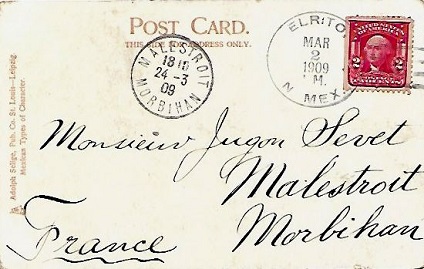 POST CARD.
THIS SIDE FOR ADDRESS ONLY.
MALESTROIT
18
24-3
09
MORBIHAN
ELRITO
MAR
2
1909
M.
N. MEX.
2 2
Adolph Selige, Pub. Co. St. Louis—Leipzig.
Mexican Types of Character.
Monsieur Jugon Sevet
Malestroit
Morbihan
France